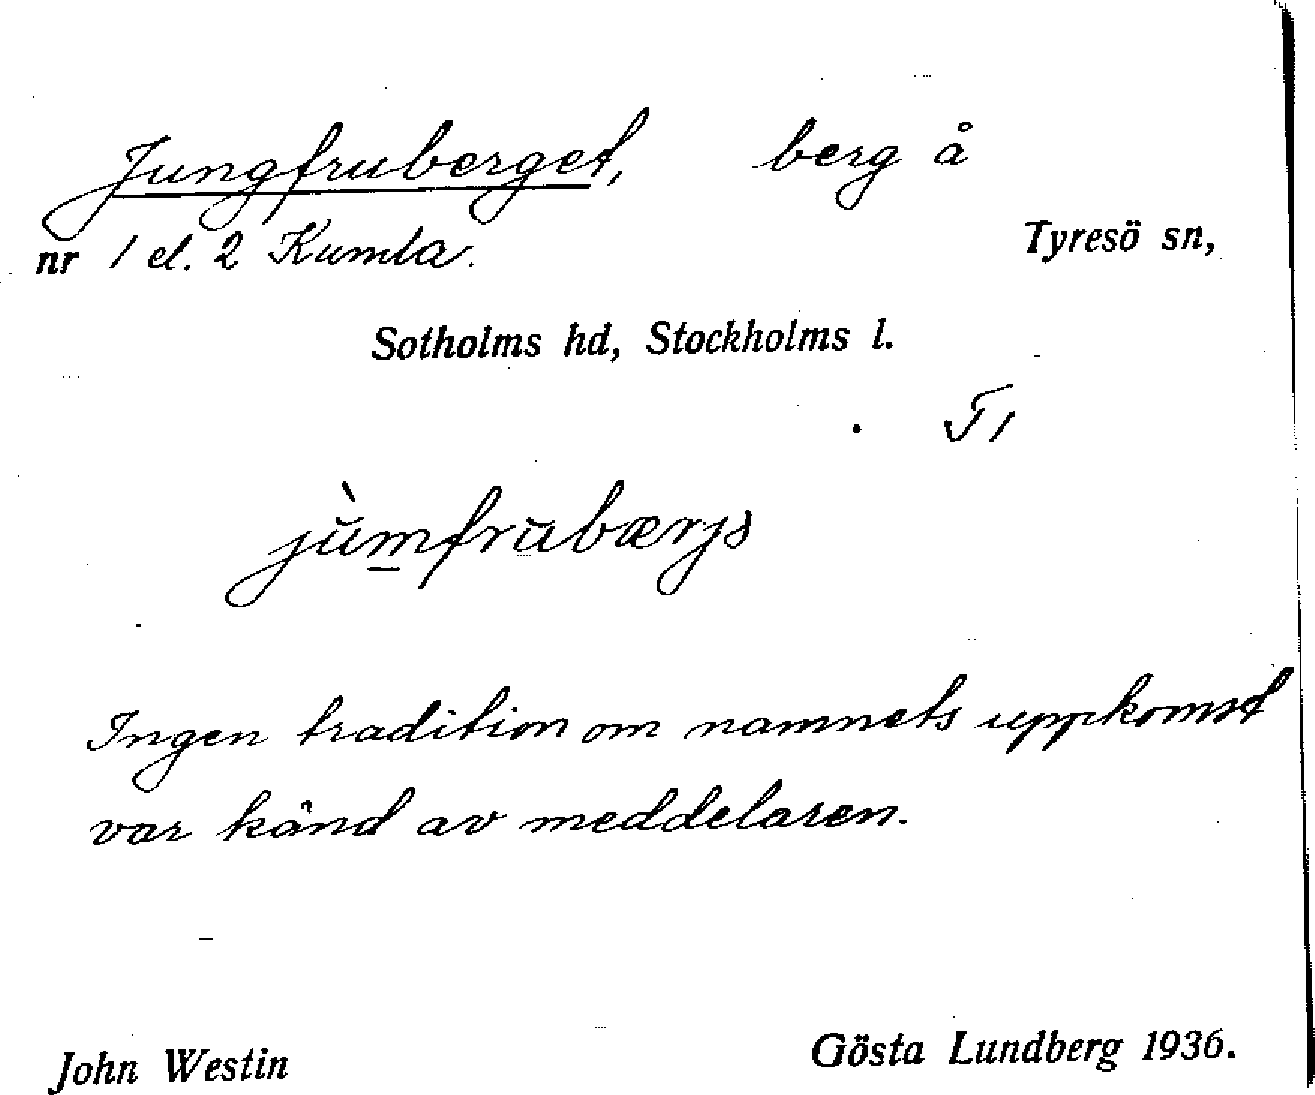 Jungfruberget, berg å
nr 1 el. 2 Kumla. Tyresö sn,
Sotholms hd, Stockholms l.
T1
Ingen tradition om namnets uppkomst
var känd av meddelaren.
John Westin Gösta Lundberg 1936.